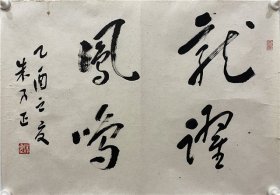 龍躍
鳳鳴
乙酉立夏
朱乃正